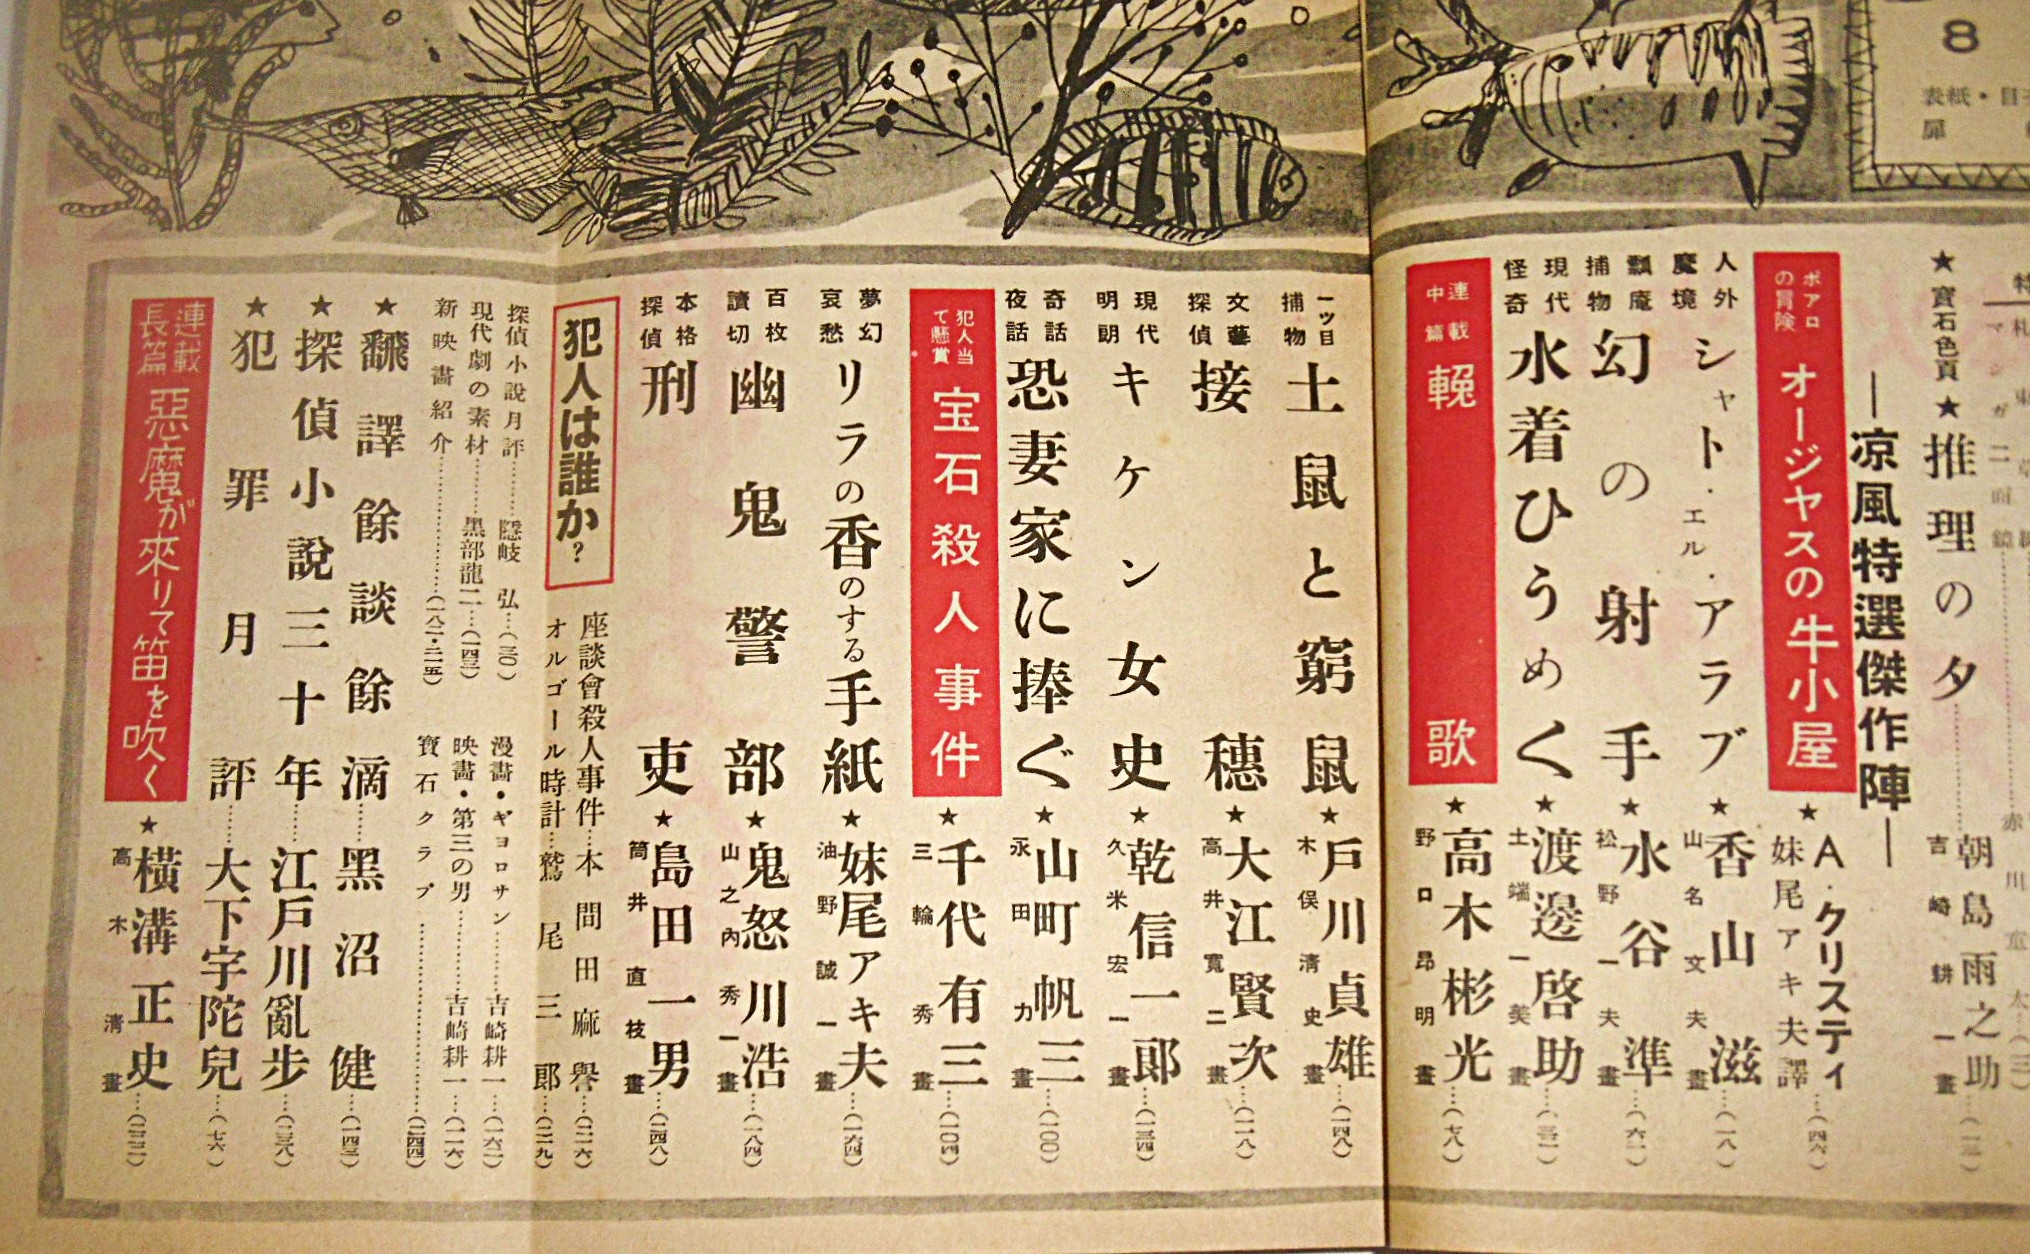 8
表紙・目
扉
特
★寶石色頁★
推理の夕……朝島雨之助…(一三)
吉崎耕一畫
―凉風特選傑作陣―
ポアロの冒険
オージヤスの牛小屋★A・クリスティ
妹尾アキ夫譯…(四六)
人外魔境
シャト・エル・アラブ★香山滋…(一八)
山名文夫畫
瓢庵捕物
幻の射手★水谷準…(六一)
松野一夫畫
現代怪奇
水着ひうめく★渡邊啓助…(三二)
土端一美畫
連載中篇
輓歌★高木彬光…(七八)
野口昂明畫
一ツ目捕物
土鼠と窮鼠★戸川貞雄…(一四八)
木俣淸史畫
文藝探偵
接穗★大江賢次…(一一八)
高井寛二畫
現代明朗
キケン女史★乾信一郎…(一三四)
久米宏一畫
奇話夜話
恐妻家に捧ぐ★山町帆三…(一〇〇)
永田力畫
犯人当て懸賞
宝石殺人事件★千代有三…(一〇四)
三輪秀畫
夢幻哀愁
リラの香のする手紙★妹尾アキ夫…(一六四)
油野誠一畫
百枚讀切
幽鬼警部★鬼怒川浩…(一八四)
山之內秀一畫
本格探偵
刑吏★島田一男…(二四八)
筒井直枝畫
犯人は誰か?
座談會殺人事件…本間田麻譽…(二一六)
オルゴール時計…鷲尾三郎…(二二九)
探偵小說月評……隱岐弘…(三〇)
現代劇の素材……黑部龍二…(一四三)
新映畫紹介……(一八二・二一五)
漫畫・ギョロサン……吉崎耕一…(一六二)
映畫・第三の男……吉崎耕一…(一一六)
寶石クラブ……(二四四)
★飜譯餘談餘滴……黑沼健…(一四三)
★探偵小說三十年……江戶川亂步…(二三八)
★犯罪月評……大下宇陀兒…(七六)
連載長篇
惡魔が來りて笛を吹く★横溝正史…(二三二)
高木淸畫